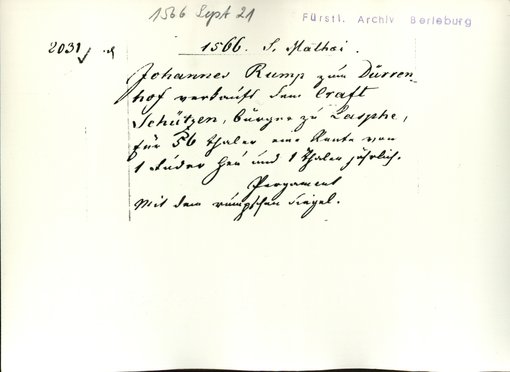 1566 Sept 21
Fürstl. Archiv Berleburg
2031
1566. S. Mathaei.
Johannes Rump zum Dürren-
hof verkauft dem Craft
Schützen, Bürger zu Lasphe,
für 56 Thaler eine Rente von
1 Fuder Heu und 1 Thaler jährlich.
Pergament
Mit dem rumpschen Siegel.